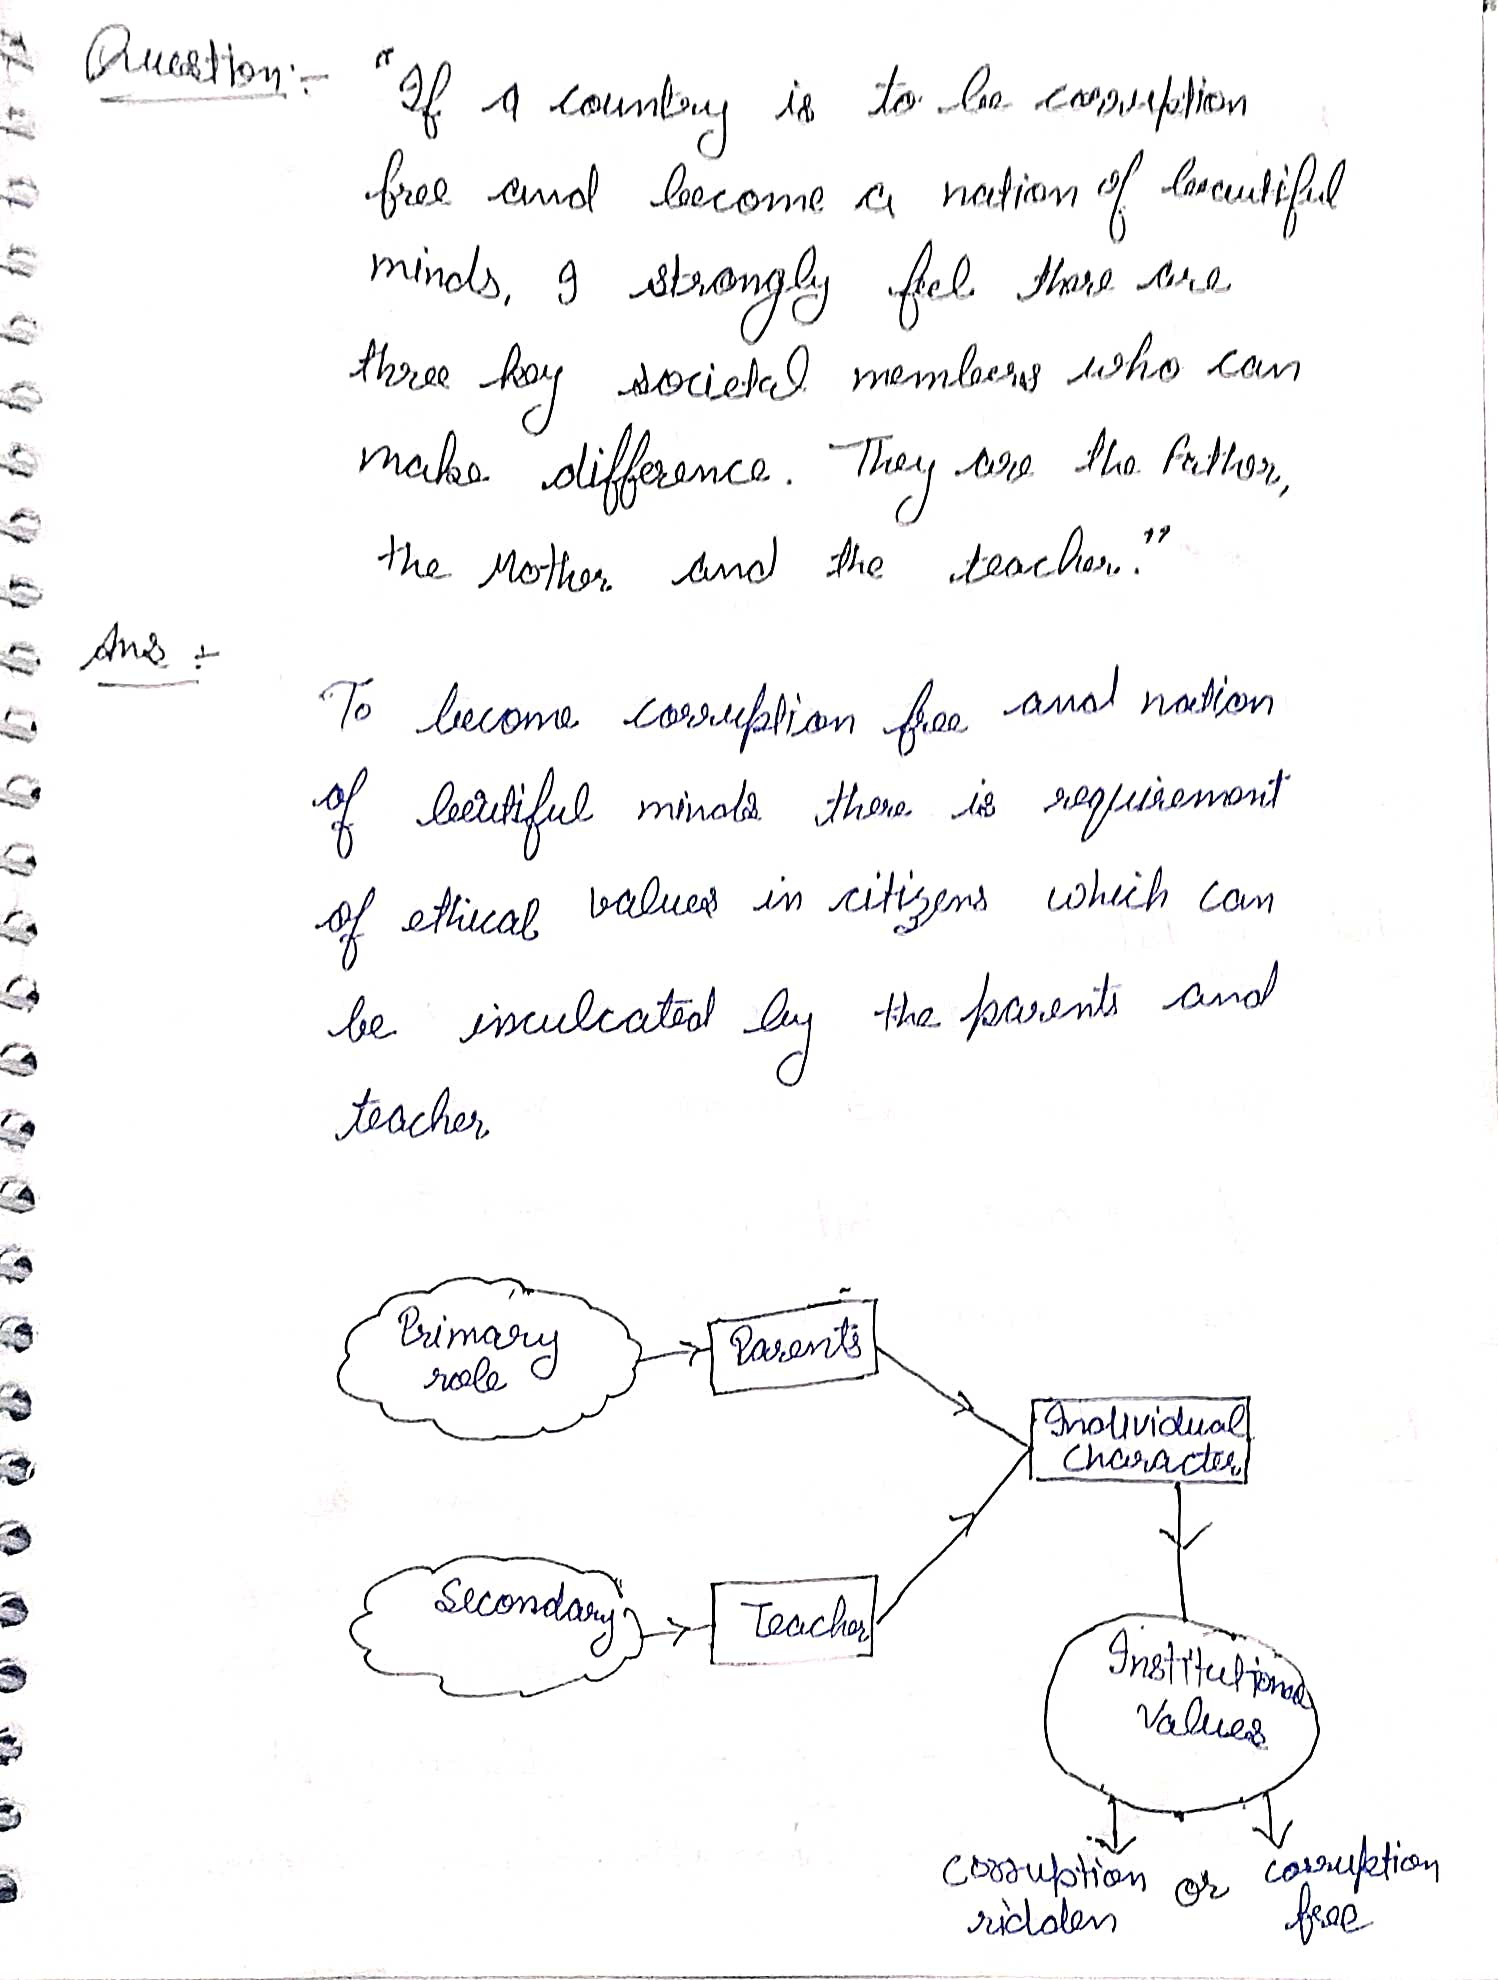 Question:- "If a country is to be corruption
free and become a nation of beautiful
minds, I strongly feel there are
three key societal members who can
make difference. They are the Father,
the Mother and the teacher."
Ans :-
To become corruption free and nation
of beutiful minds there is requirement
of ethical values in citizens which can
be inculcated by the parents and
teacher.
Primary
role
Parents
Individual
Character
Secondary
Teacher
Institutional
Values
corruption
ridden
or
corruption
free